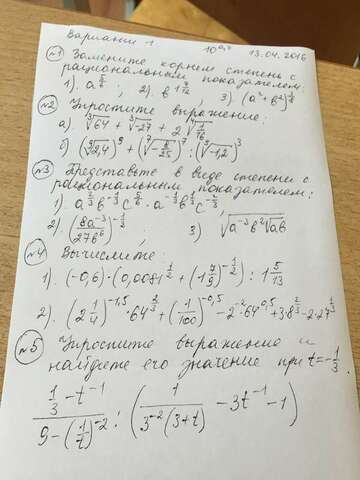 Вариант 1. 10⁰⁷ 13.04.2016
№1 Замените корнем степень с
рациональным показателем:
1). a^(5/6); 2) b^(1 3/12); 3). (a²+b²)^(1/2)
№2 Упростите выражение:
а). ∛64 + ∛-27 + 2∜(1/16)
б) (⁹√2,4)⁹ + (⁷√(-8/25))⁷ : (³√-1,2)³
№3 Представьте в виде степени с
рациональным показателем:
1) a^(2/3) b^(-1/3) c^(5/6) · a^(-1/3) b^(1/3) c^(-2/3)
2) (8a⁻³/27b⁶)^(-1/3) 3) √(a⁻³b²√(ab))
№4 Вычислите:
1). (-0,6)·(0,0081^(1/2) + (1 7/9)^(-1/2)) : 1 5/13
2). (2 1/4)^(-1,5) · 64^(2/3) + (1/100)^(-0,5) - 2⁻²·64^(0,5) + 3·8^(2/3) - 2·27^(1/3)
№5 Упростите выражение и
найдите его значение при t=-1/3.
(1/3 - t⁻¹)/(9-(1/t)⁻²) : (1/(3⁻²(3+t)) - 3t⁻¹ - 1)